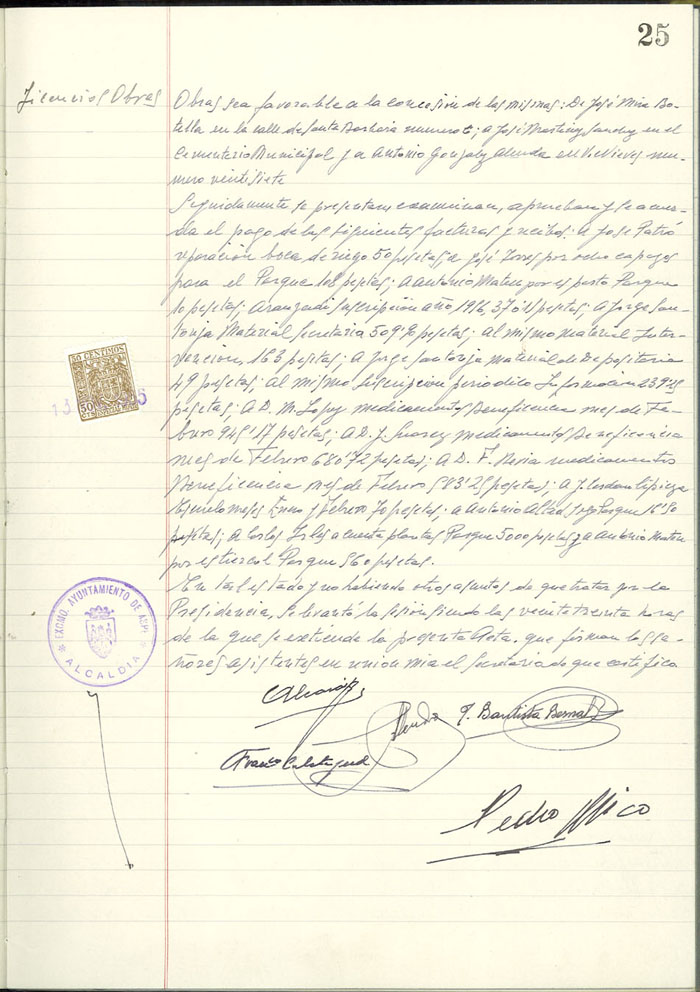 25
Licencias Obras
Obras sea favorable a la concesión de las mismas: De José Mira Bo-
tella en la calle de Santa Barbara numero; a José Martinez Sanchez en el
Cementerio Municipal y a Antonio Gonzalez en Nieves nu-
mero veintisiete
Seguidamente se presentan examinan, aprueban y se acuer-
da el pago de las siguientes facturas y recibos: A Jose Patró
reparación boca de riego 50 pesetas a José por ocho capazos
para el Parque 108 pesetas; a Antonio Mateu por Parque
pesetas; Aranzadi suscripción año 1956, pesetas; a Jorge San-
tonja Material Secretaria 509'90 pesetas; al mismo material Inter-
vencion, 163 pesetas; a Jorge Santonja material de Depositaria
49 pesetas; al mismo suscripcion periodico Informacion
pesetas; A D. M. Lopez medicamentos Beneficencia mes de Fe-
brero 945'17 pesetas; A D. J. Suarez medicamentos Beneficencia
mes de Febrero 680'72 pesetas; A D. F. medicamentos
Beneficencia mes de Febrero 583'25 pesetas; a J. limpieza
Escuela meses Enero y Febrero 70 pesetas; a Antonio Parque 16'50
pesetas; a Carlos a cuenta plantas Parque 5000 pesetas y a Antonio Mateu
por estiercol Parque 560 pesetas.
En tal estado y no habiendo otros asuntos de que tratar por la
Presidencia, se levantó la sesión siendo las veinte treinta horas
de la que se extiende la presente Acta que firman los se-
ñores asistentes en union mia el Secretario de que certifico
50 CENTIMOS
EXCMO. AYUNTAMIENTO DE ASPE
ALCALDIA
P. Bautista Bernal
Pedro Mico